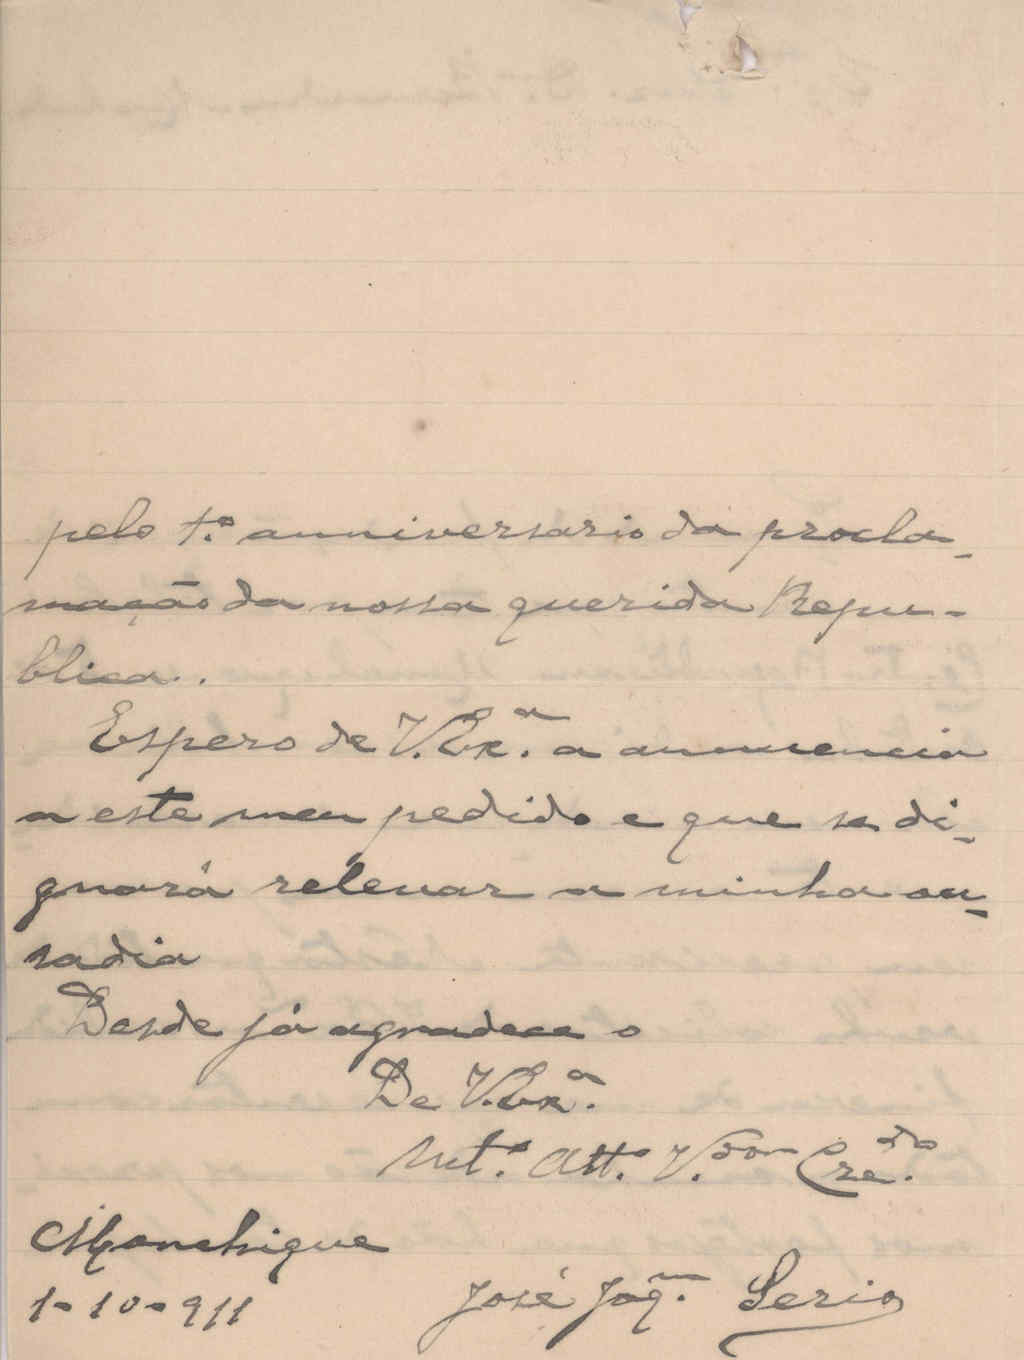 pelo 1.º anniversario da procla-
mação da nossa querida Repu-
blica.
Espero de V. Ex.ª a annuencia
a este meu pedido e que se di-
gnará relevar a minha ou-
sadia
Desde já agradece o
De V. Ex.ª
Mt.º Att.º V.dor Cre.do
Monchique
1-10-911
José Joaq.m Serio